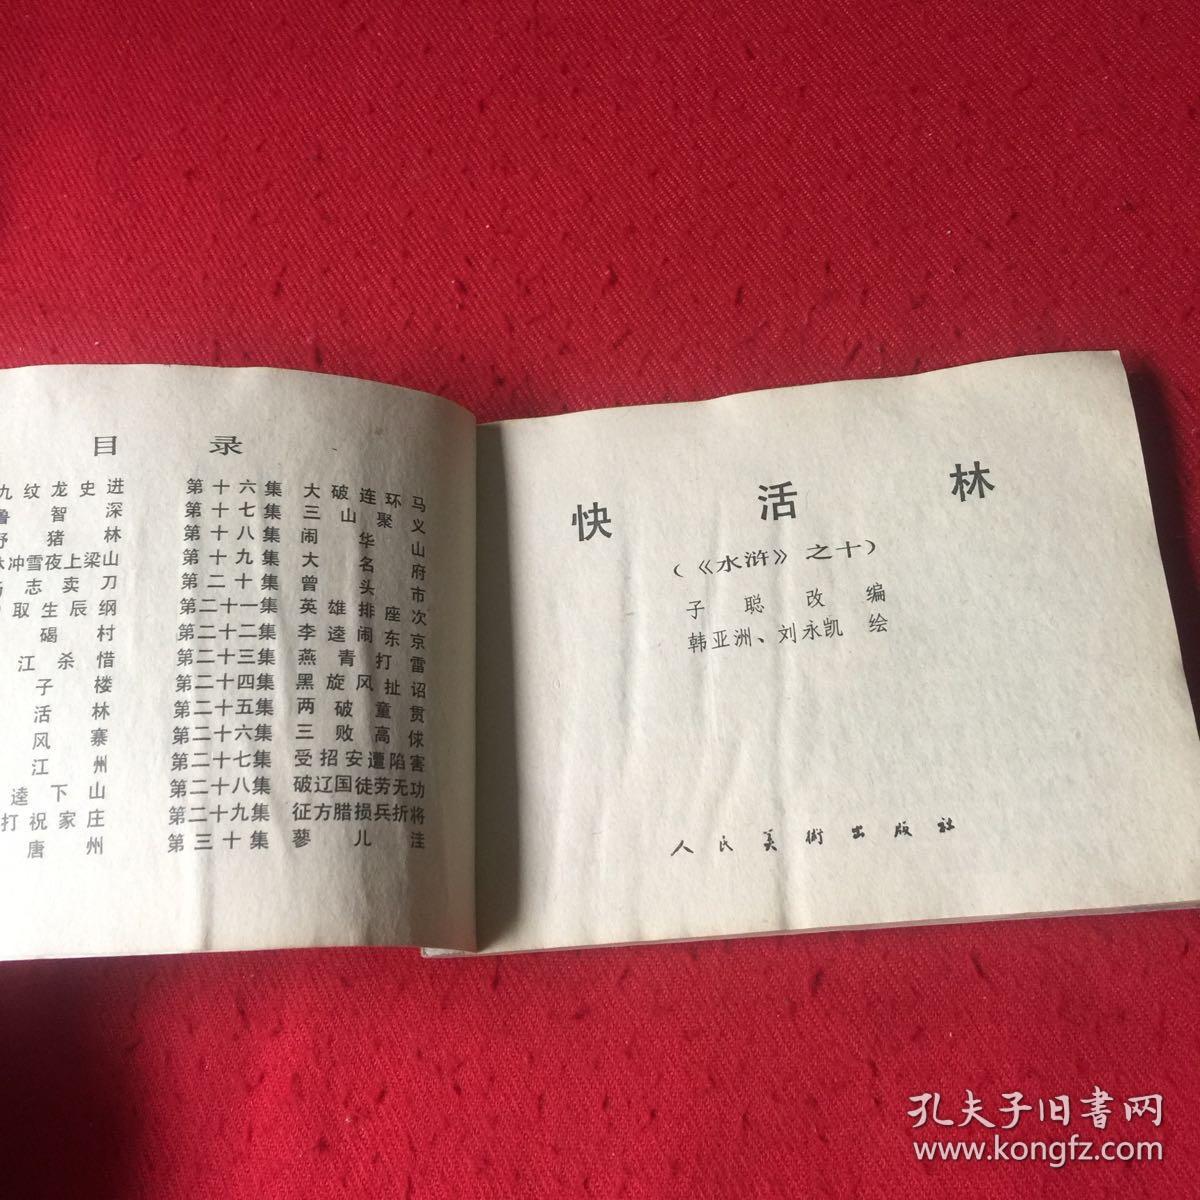 目 录
九纹龙史进
鲁智深
野猪林
林冲雪夜上梁山
杨志卖刀
取生辰纲
碣村
江杀惜
子楼
活林
风寨
江州
逵下山
打祝家庄
唐州
第十六集 大破连环马
第十七集 三山聚义
第十八集 闹华山
第十九集 大名府
第二十集 曾头市
第二十一集 英雄排座次
第二十二集 李逵闹东京
第二十三集 燕青打雷
第二十四集 黑旋风扯诏
第二十五集 两破童贯
第二十六集 三败高俅
第二十七集 受招安遭陷害
第二十八集 破辽国徒劳无功
第二十九集 征方腊损兵折将
第三十集 蓼儿洼
快活林
（《水浒》之十）
子聪改编
韩亚洲、刘永凯 绘
人民美術出版社
孔夫子旧书网
www.kongfz.com